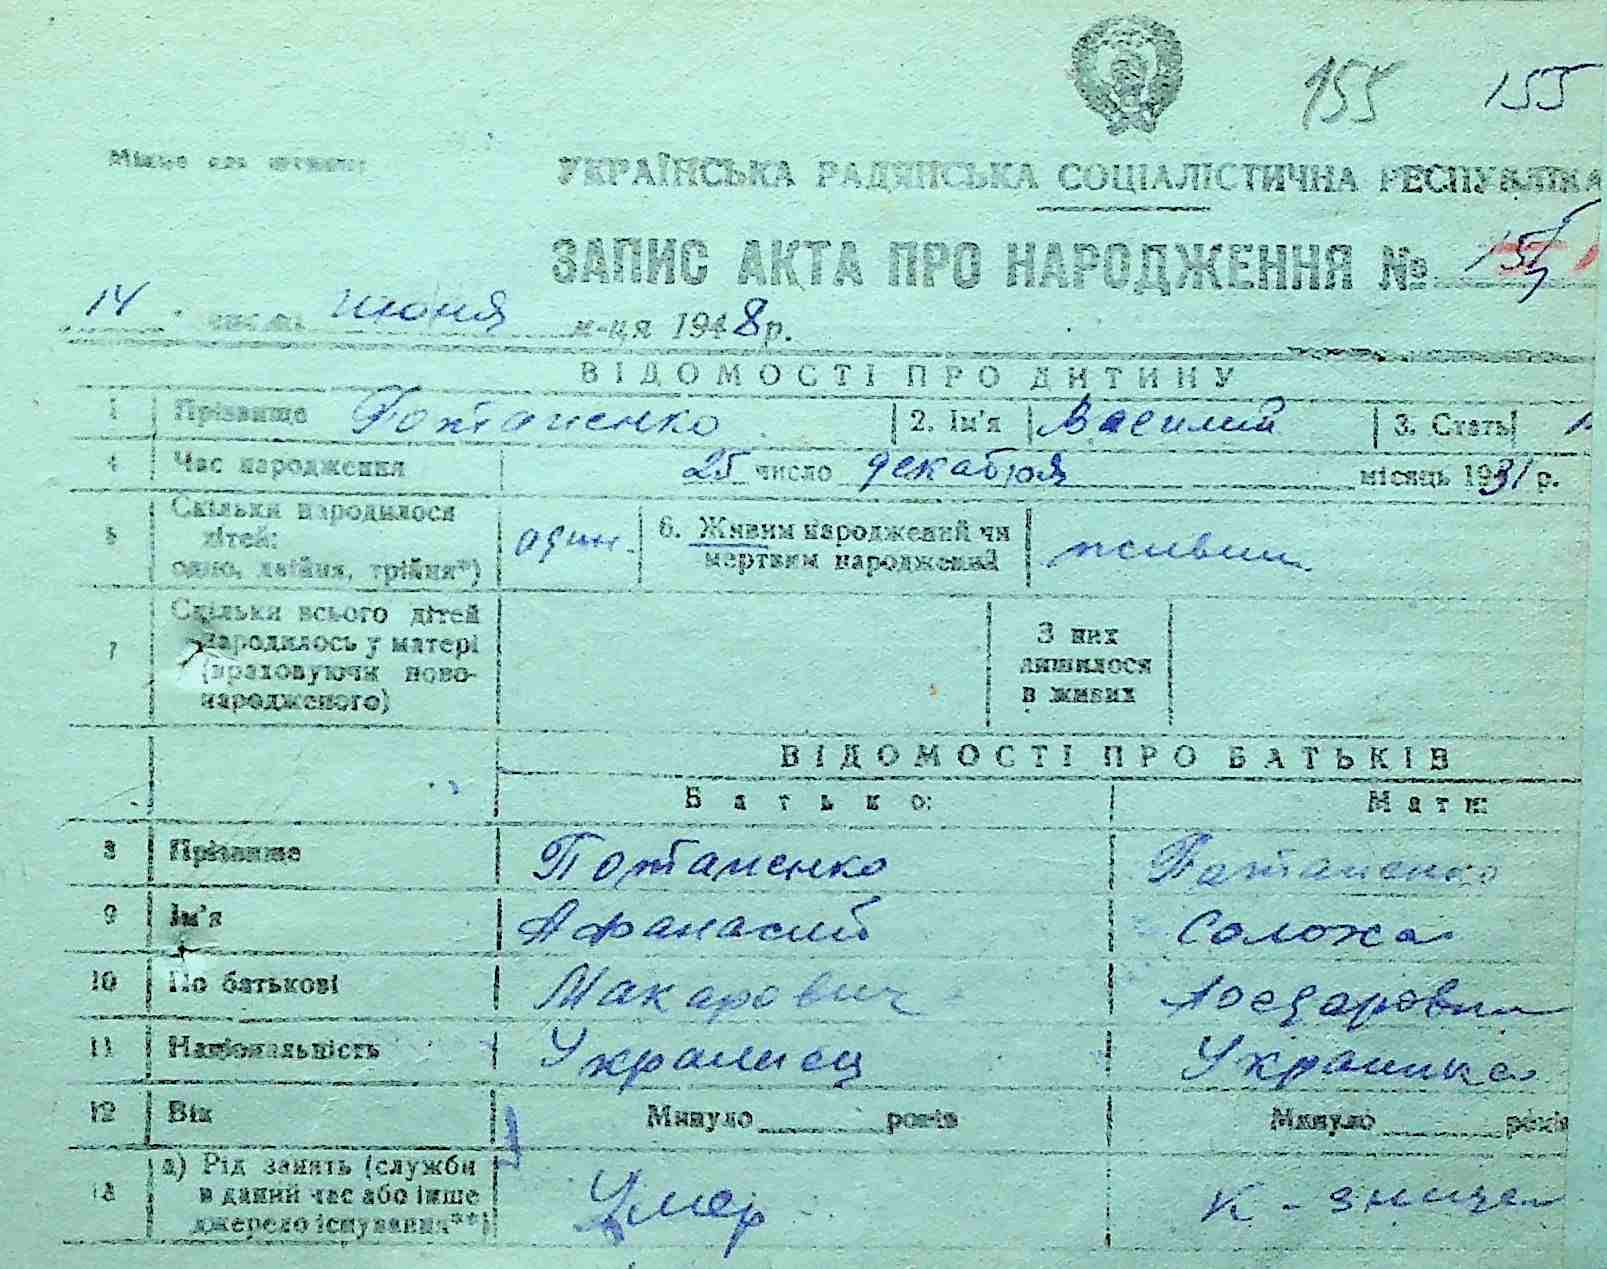 155 155
Місце для штампу
УКРАЇНСЬКА РАДЯНСЬКА СОЦІАЛІСТИЧНА РЕСПУБЛІКА
ЗАПИС АКТА ПРО НАРОДЖЕННЯ №
14 июня м-ця 1948 р.
ВІДОМОСТІ ПРО ДИТИНУ
1 Прізвище Потапенко 2. Ім'я Василий 3. Стать
4 Час народження 25 число декабря місяць 1931 р.
Скільки народилося
5 дітей: один. 6. Живим народжений чи живим
одно, двійня, трійня**) мертвим народжений
Скільки всього дітей
народилось у матері З них
7 (враховуючи ново- лишилося
народженого) в живих
ВІДОМОСТІ ПРО БАТЬКІВ
Батько: Мати:
8 Прізвище Потапенко Потапенко
9 Ім'я Афанасий Соложа
10 По батькові Макарович
11 Національність Украинец Украинка
12 Вік Минуло років Минуло років
а) Рід занять (служби
13 в даний час або інше Умер К-
джерело існування**)